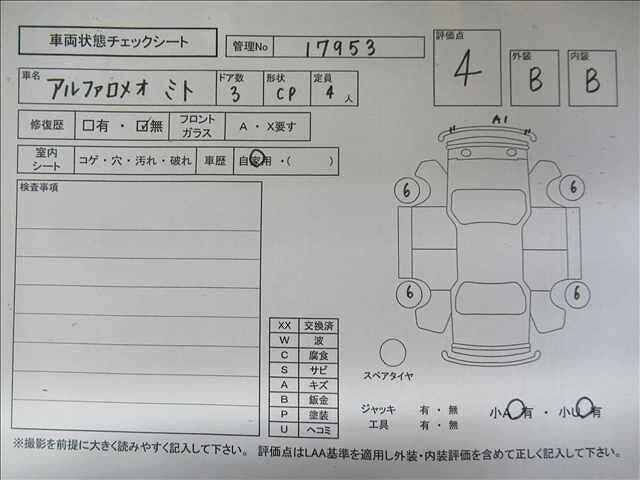 車両状態チェックシート
管理No 17953
評価点 4
外装 B
内装 B
車名 アルファロメオ ミト
ドア数 3
形状 CP
定員 4人
修復歴 □有・☑無
フロントガラス A・X要す
室内シート コゲ・穴・汚れ・破れ
車歴 自家用・( )
検査事項
A1
6
6
6
6
スペアタイヤ
XX 交換済
W 波
C 腐食
S サビ
A キズ
B 鈑金
P 塗装
U ヘコミ
ジャッキ 有・無
工具 有・無
小A 有・小U 有
※撮影を前提に大きく読みやすく記入して下さい。 評価点はLAA基準を適用し外装・内装評価を含めて正しく記入して下さい。